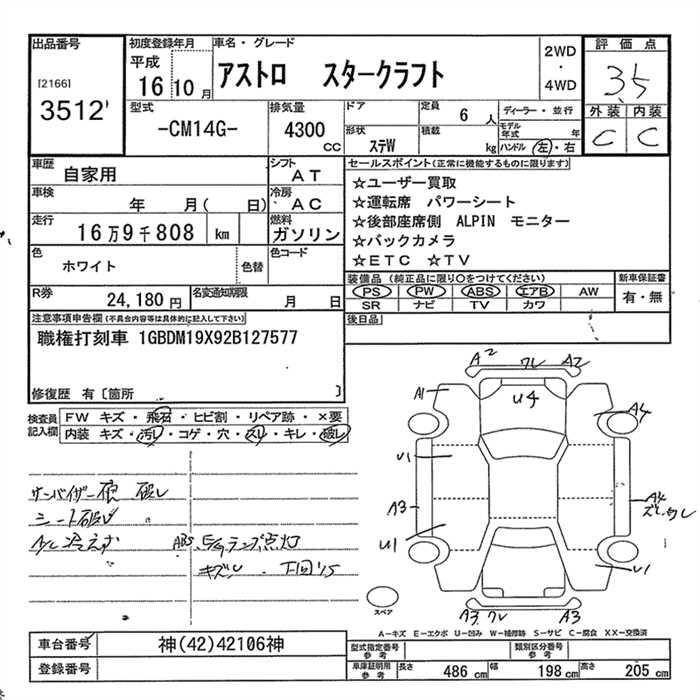 出品番号 初度登録年月 車名・グレード 2WD ・ 4WD 評価点
[2166] 平成 16年 10月 アストロ スタークラフト 3.5
3512 外装 内装
型式 排気量 ドア 定員 6人 ディーラー・並行 C C
-CM14G- 4300cc 形状 ステW 積載 kg モデル年式 年 ハンドル 左・右
車歴 自家用 シフト AT セールスポイント(正常に機能するものに限ります)
車検 年 月( 日) 冷房 AC ☆ユーザー買取
☆運転席 パワーシート
走行 16万9千808 km 燃料 ガソリン ☆後部座席側 ALPIN モニター
☆バックカメラ
色 ホワイト 色替 色コード ☆ETC ☆TV
装備品 (純正品に限り○をつけてください) 新車保証書
R券 24,180円 名変通知期限 月 日 PS PW ABS エアB AW 有・無
SR ナビ TV カワ
注意事項申告欄(不具合内容等は具体的に記入して下さい) 後日品
職権打刻車 1GBDM19X92B127577
修復歴 有〔箇所 〕
検査員記入欄 FW キズ・飛石・ヒビ割・リペア跡・×要
内装 キズ・汚レ・コゲ・穴・スレ・キレ・破レ
A2 ワレ A2
A1 U4 A4
U1
A3 A4
U1 U1
サンバイザー 破レ
シート破レ
A/C冷えず ABS, E/Gランプ点灯
キズ
スペア
A3 ワレ A3
A-キズ E-エクボ U-凹み W-補修跡 S-サビ C-腐食 XX-交換済
車台番号 神(42)42106神 型式指定番号 参考 類別区分番号 参考
登録番号 車庫証明用 参考 長さ 486cm 幅 198cm 高さ 205cm